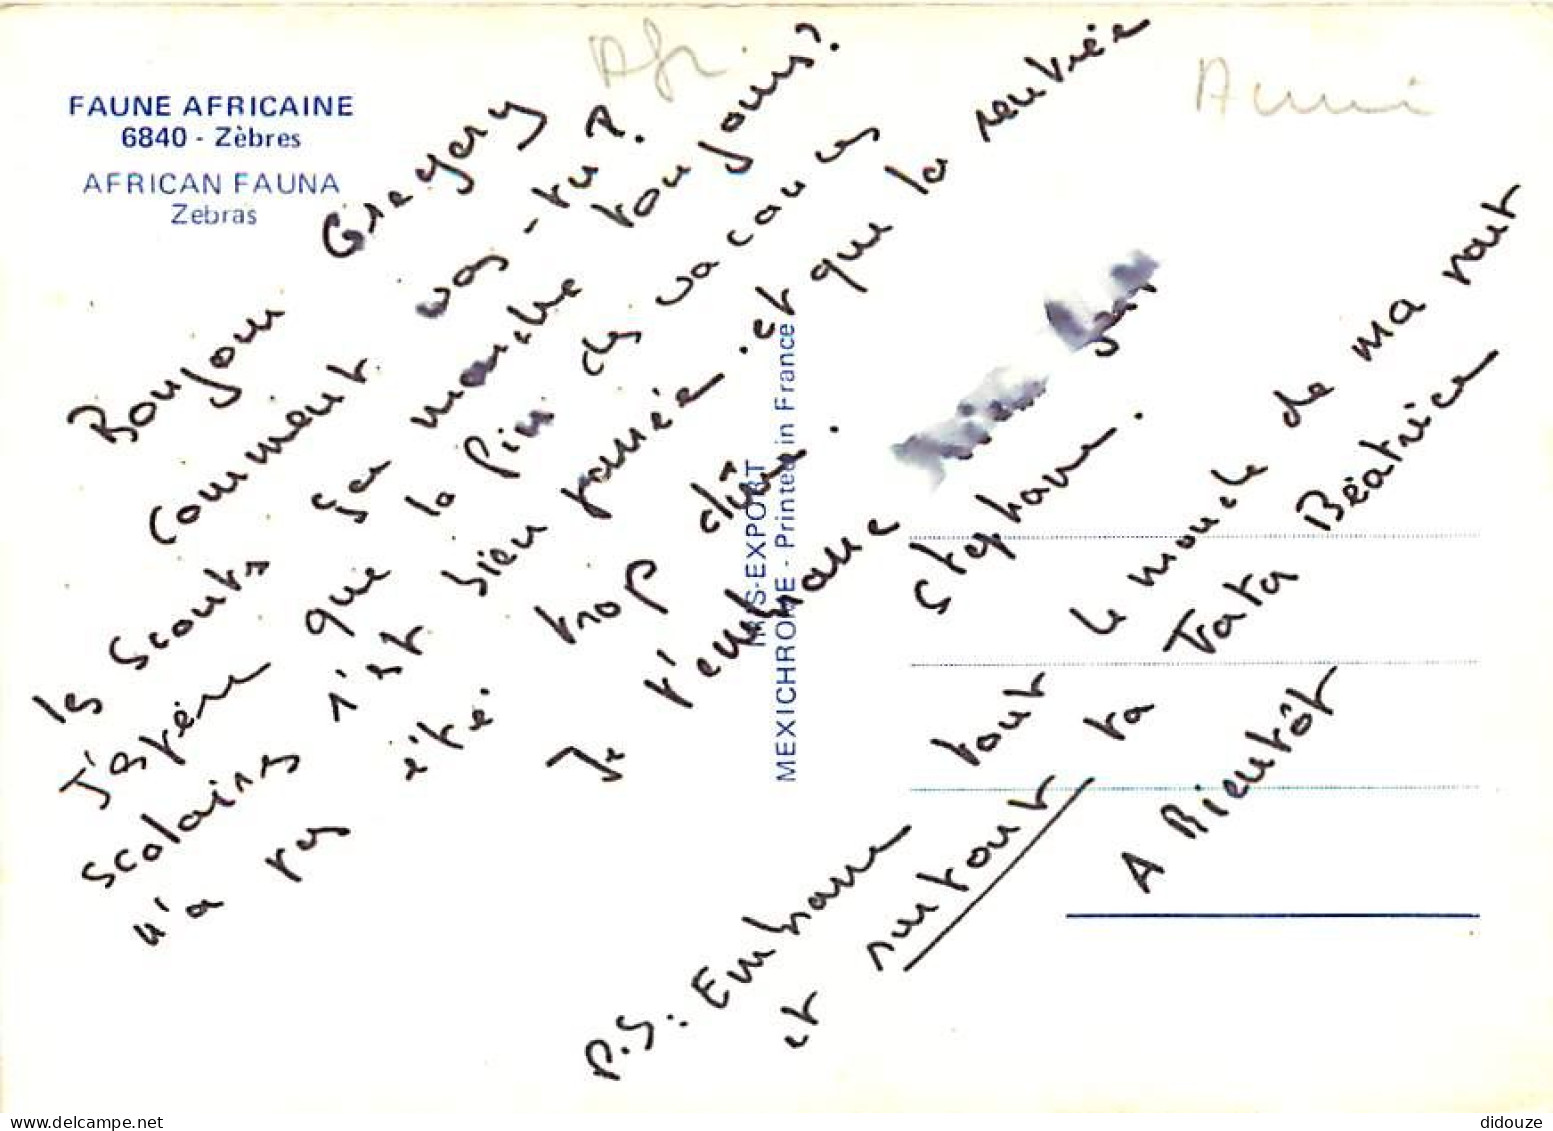 FAUNE AFRICAINE
6840 - Zèbres
AFRICAN FAUNA
Zebras
Afr.
Bonjour Gregory
Comment vas-tu P.
les scouts ça marche toujours?
J'espère que la fin des vacances
scolaires s'est bien passée et que la rentrée
n'a pas été trop dûre.
Je t'embrasse
Stephane.
P.S.: Embrasse tout le monde de ma part
et surtout ta Tata Béatrice
A Bientôt
IRIS-EXPORT
MEXICHROME - Printed in France
didouze